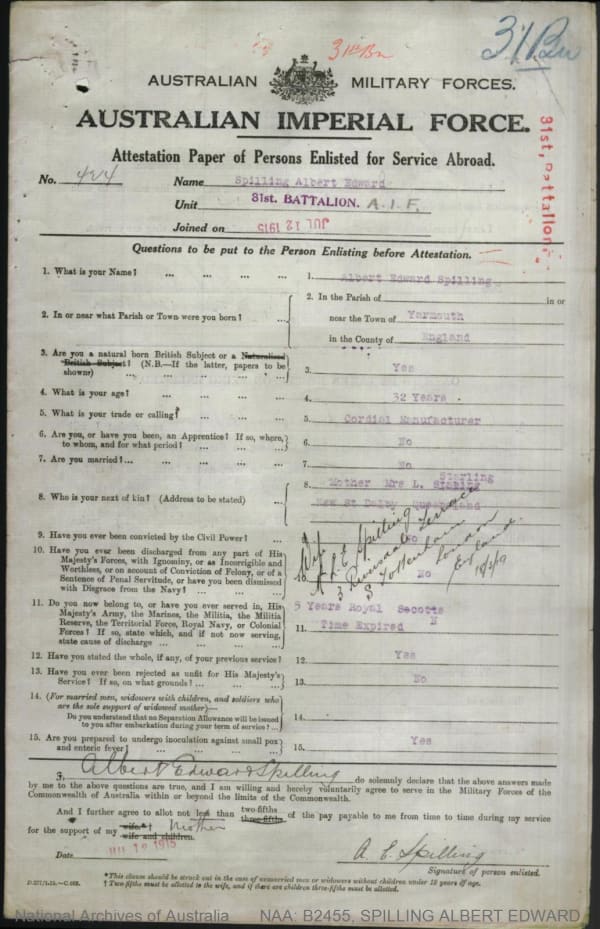 31 Bn
31st Bn
AUSTRALIAN MILITARY FORCES.
AUSTRALIAN IMPERIAL FORCE.
31st. Battalion.
Attestation Paper of Persons Enlisted for Service Abroad.
No. 424 Name Spilling Albert Edward
Unit 31st. BATTALION. A.I.F.
Joined on JUL 12 1915
Questions to be put to the Person Enlisting before Attestation.
1. What is your Name? ... ... ... ... 1. Albert Edward Spilling
2. In or near what Parish or Town were you born? ... 2. In the Parish of in or
near the Town of Yarmouth
in the County of England
3. Are you a natural born British Subject or a Naturalised
British Subject? (N.B.—If the latter, papers to be
shown) 3. Yes
4. What is your age? ... ... ... ... 4. 32 Years
5. What is your trade or calling? ... ... ... 5. Cordial Manufacturer
6. Are you, or have you been, an Apprentice? If so, where,
to whom, and for what period? ... ... ... 6. No
7. Are you married? ... ... ... ... ... 7. No
8. Who is your next of kin? (Address to be stated) ... 8. Mother Mrs L. Starling
New St Dalby Queensland
Wife
A L E Spilling
3 Terrace
S Tottenham
London
England.
9. Have you ever been convicted by the Civil Power? ... No
10. Have you ever been discharged from any part of His
Majesty's Forces, with Ignominy, or as Incorrigible and
Worthless, or on account of Conviction of Felony, or of a
Sentence of Penal Servitude, or have you been dismissed
with Disgrace from the Navy? ... ... ... 10. No
11. Do you now belong to, or have you ever served in, His
Majesty's Army, the Marines, the Militia, the Militia
Reserve, the Territorial Force, Royal Navy, or Colonial
Forces? If so, state which, and if not now serving,
state cause of discharge ... ... ... ...
5 Years Royal Secotts
11. Time Expired N
12. Have you stated the whole, if any, of your previous service? 12. Yes
13. Have you ever been rejected as unfit for His Majesty's
Service? If so, on what grounds? ... ... ... 13. No
14. (For married men, widowers with children, and soldiers who
are the sole support of widowed mother)—
Do you understand that no Separation Allowance will be issued
to you after embarkation during your term of service? ... 14.
15. Are you prepared to undergo inoculation against small pox
and enteric fever? ... ... ... ... 15. Yes
I, Albert Edward Spilling do solemnly declare that the above answers made
by me to the above questions are true, and I am willing and hereby voluntarily agree to serve in the Military Forces of the
Commonwealth of Australia within or beyond the limits of the Commonwealth.
And I further agree to allot not less than two-fifths three-fifths of the pay payable to me from time to time during my service
for the support of my wife* wife and children. Mother
Date JUL 12 1915
A. E. Spilling
Signature of person enlisted.
*This clause should be struck out in the case of unmarried men or widowers without children under 18 years of age.
† Two fifths must be allotted to the wife, and if there are children three-fifths must be allotted.
National Archives of Australia NAA: B2455, SPILLING ALBERT EDWARD